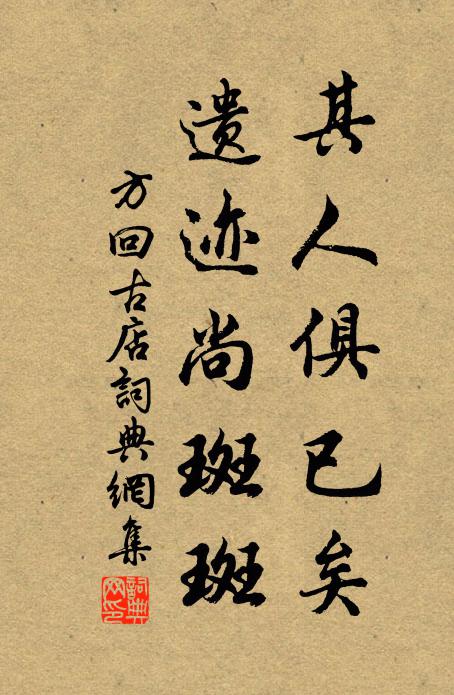 其人俱已矣
遗迹尚斑斑
方回古店詞典網集
詞典網印